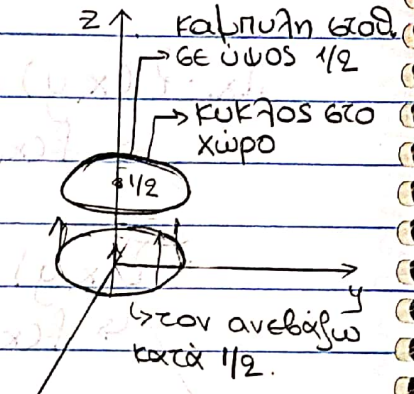 z
καμπυλη σταθ.
σε ύψος 1/2
κυκλος στο
χώρο
1/2
y
τον ανεβάζω
κατά 1/2.